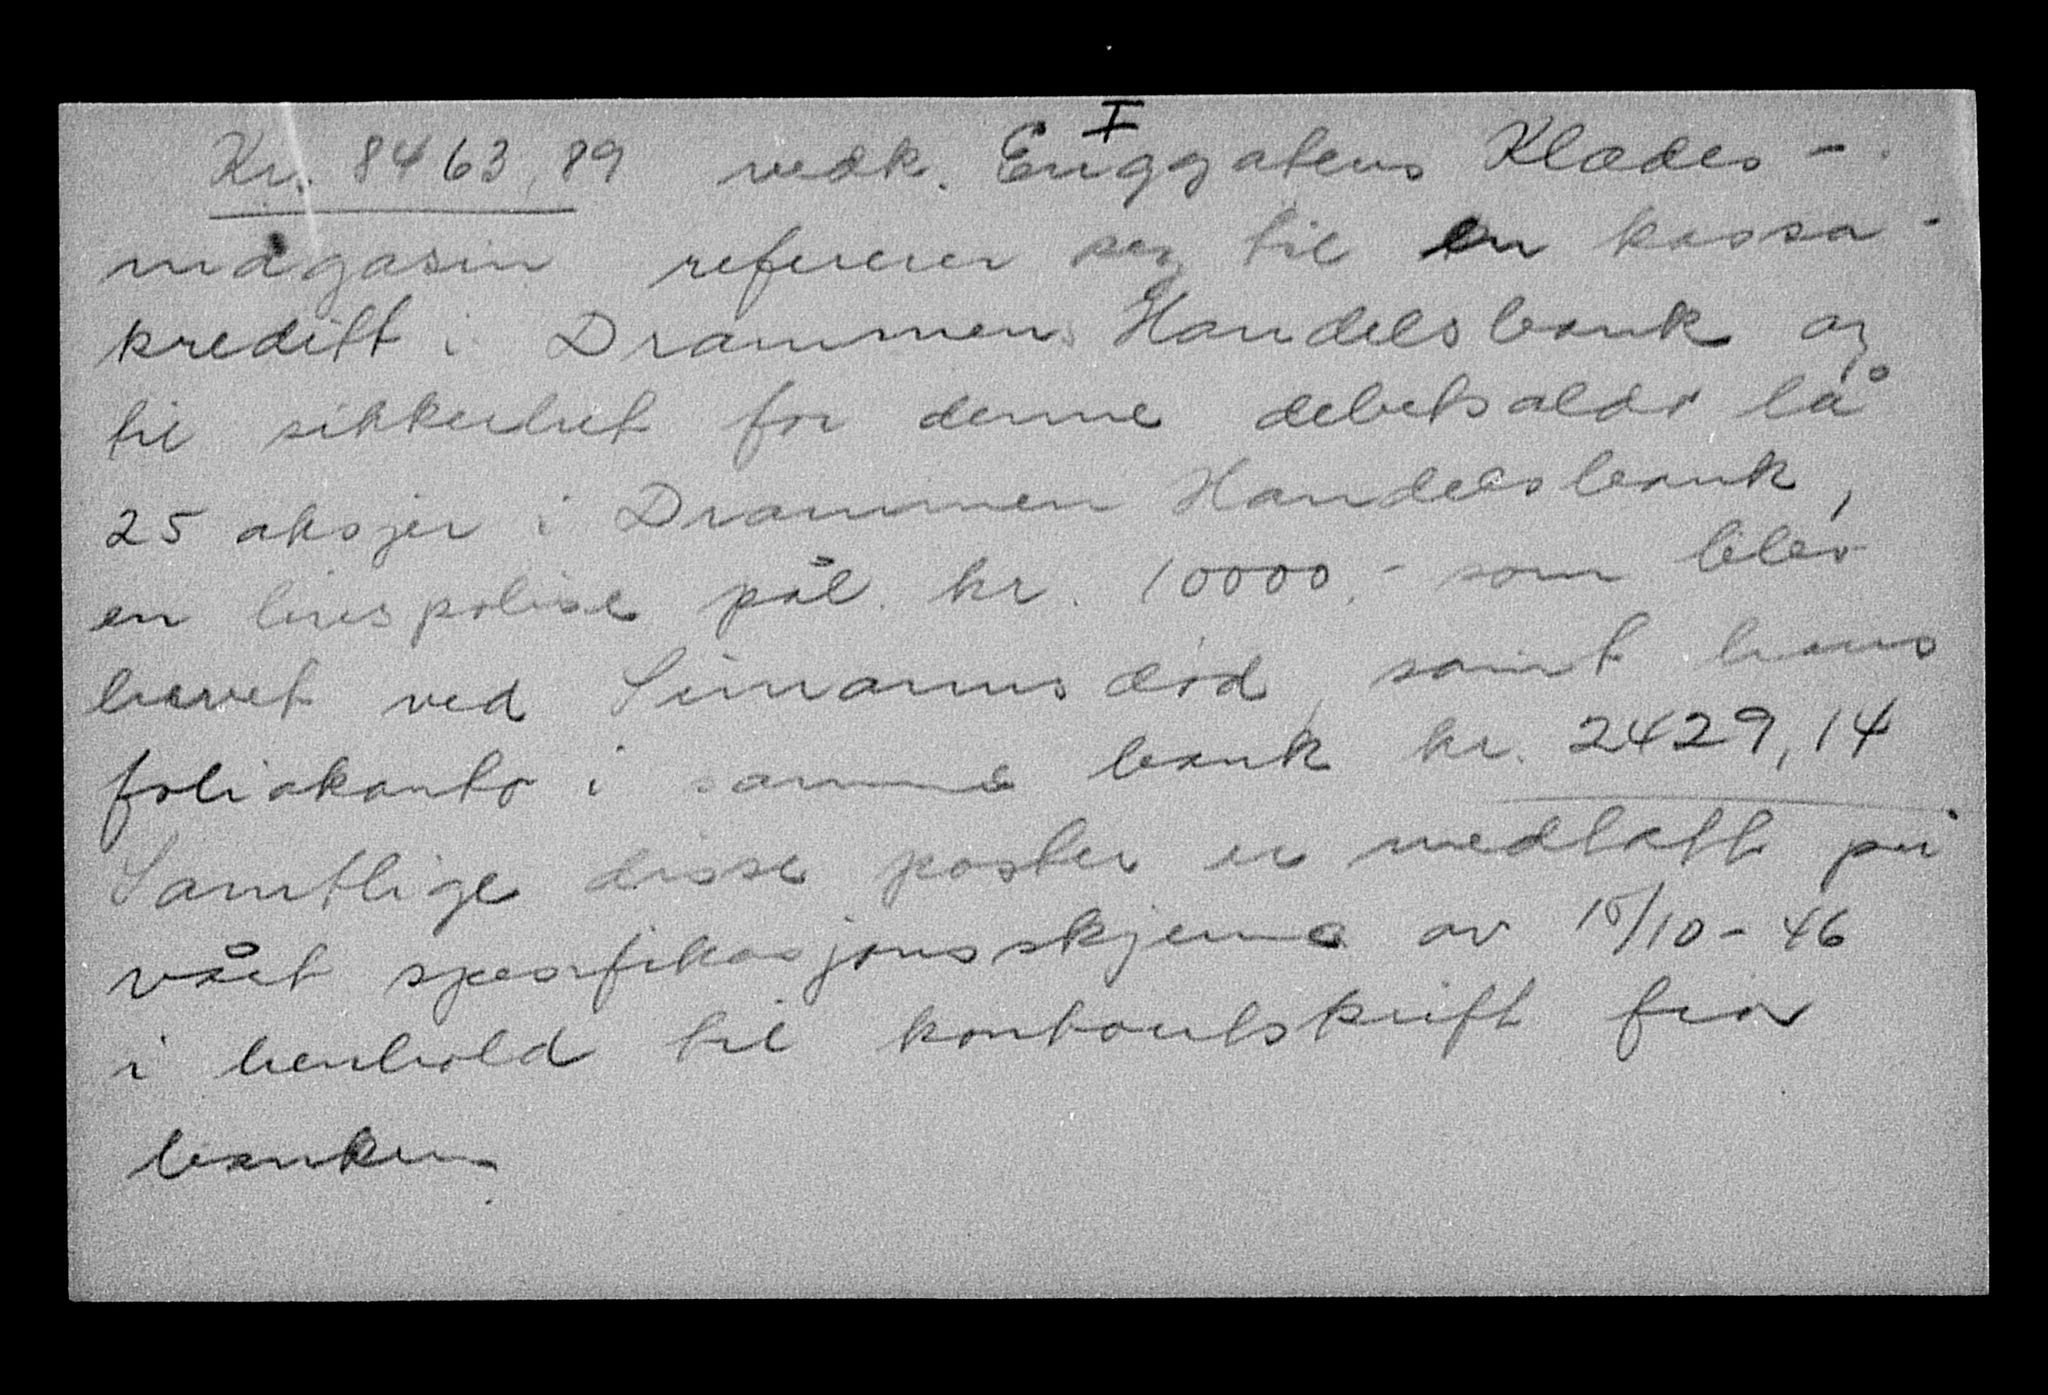 I
Kr. 8463,89 vedk. Enggatens Klædes-
magasin refererer seg til en kassa-
kreditt i Drammens Handelsbank og
til sikkerhet for denne debetsaldo lå
25 aksjer i Drammen Handelsbank,
en livspolise pål. kr. 10000.- som blev
hevet ved død, samt hans
foliokonto i samme bank kr. 2429,14
Samtlige disse poster er medtatt på
vårt spesifikasjonsskjema av 15/10-46
i henhold til kontoutskrift fra
banken.